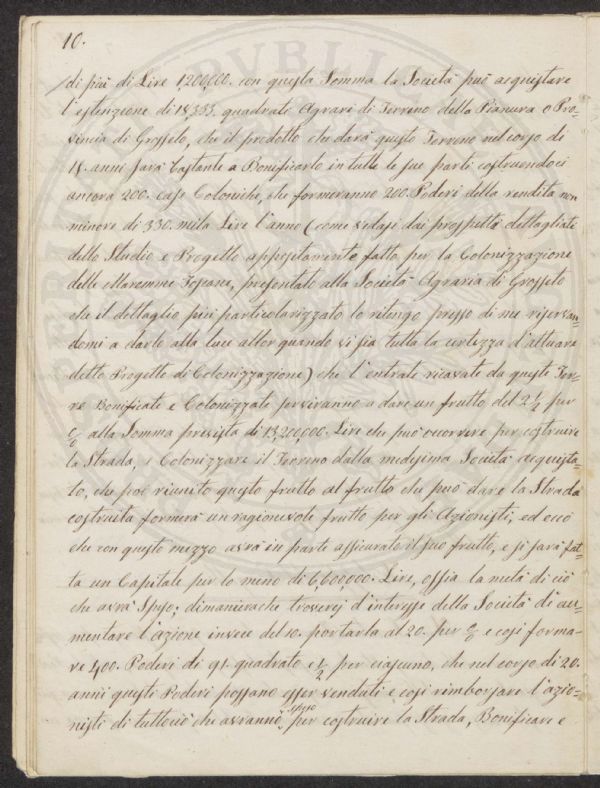 10.
di più di Lire 1,200,000. con questa Somma la Società può acquistare
l'estenzione di 18333. quadrati Agrari di Terreno della Pianura o Pro-
vincia di Grosseto, che il prodotto che darà questo Terreno nel corso di
15. anni sarà bastante a Bonificarlo in tutte le sue parti costruendoci
ancora 200. case Coloniche, che formeranno 200. Poderi della rendita non
minore di 330. mila Lire l'anno (come vedasi dai prospetti dettagliati
dello Studio e Progetto appositamente fatto per la Colonizzazione
delle Maremme Tosane, presentato alla Società Agraria di Grosseto
che il dettaglio più particolarizzato lo ritengo presso di me riservan-
domi a darlo alla luce allor quando vi sia tutta la certezza d'attuare
detto Progetto di Colonizzazione) che l'entrate ricavate da queste Ter-
re Bonificate e Colonizzate serviranno a dare un frutto del 2 1/2 per
% alla Somma prevista di 13,200,000. Lire che può occorrere per costruire
la Strada, e Colonizzare il Terreno dalla medesima Società acquista-
to, che poi riunito questo frutto al frutto che può dare la Strada
costruita formerà un ragionevole frutto per gli Azionisti; ed ecco
che con questo mezzo avrà in parte assicurato il suo frutto, e si sarà fat-
ta un Capitale per lo meno di 6,600,000. Lire, ossia la metà di ciò
che avrà speso; dimanierache troverei d'interesse della Società di au-
mentare l'azione invece del 10. portarla al 20. per % e così forma-
re 400. Poderi di 91. quadrato e 1/2 per ciascuno, che nel corso di 20.
anni questi Poderi possano esser venduti e così rimborsare l'azio-
nisti di tuttociò che avranno speso per costruire la Strada, Bonificare e